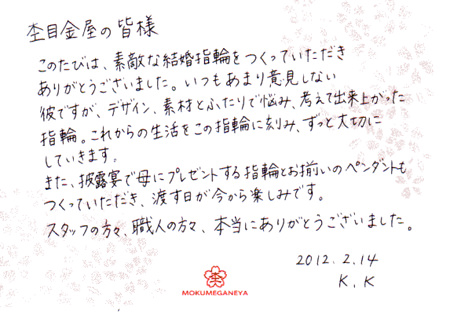 杢目金屋の皆様
このたびは、素敵な結婚指輪をつくっていただき
ありがとうございました。いつもあまり意見しない
彼ですが、デザイン、素材とふたりで悩み、考えて出来上がった
指輪。これからの生活をこの指輪に刻み、ずっと大切に
していきます。
また、披露宴で母にプレゼントする指輪とお揃いのペンダントも
つくっていただき、渡す日が今から楽しみです。
スタッフの方々、職人の方々、本当にありがとうございました。
2012.2.14
K.K
MOKUMEGANEYA